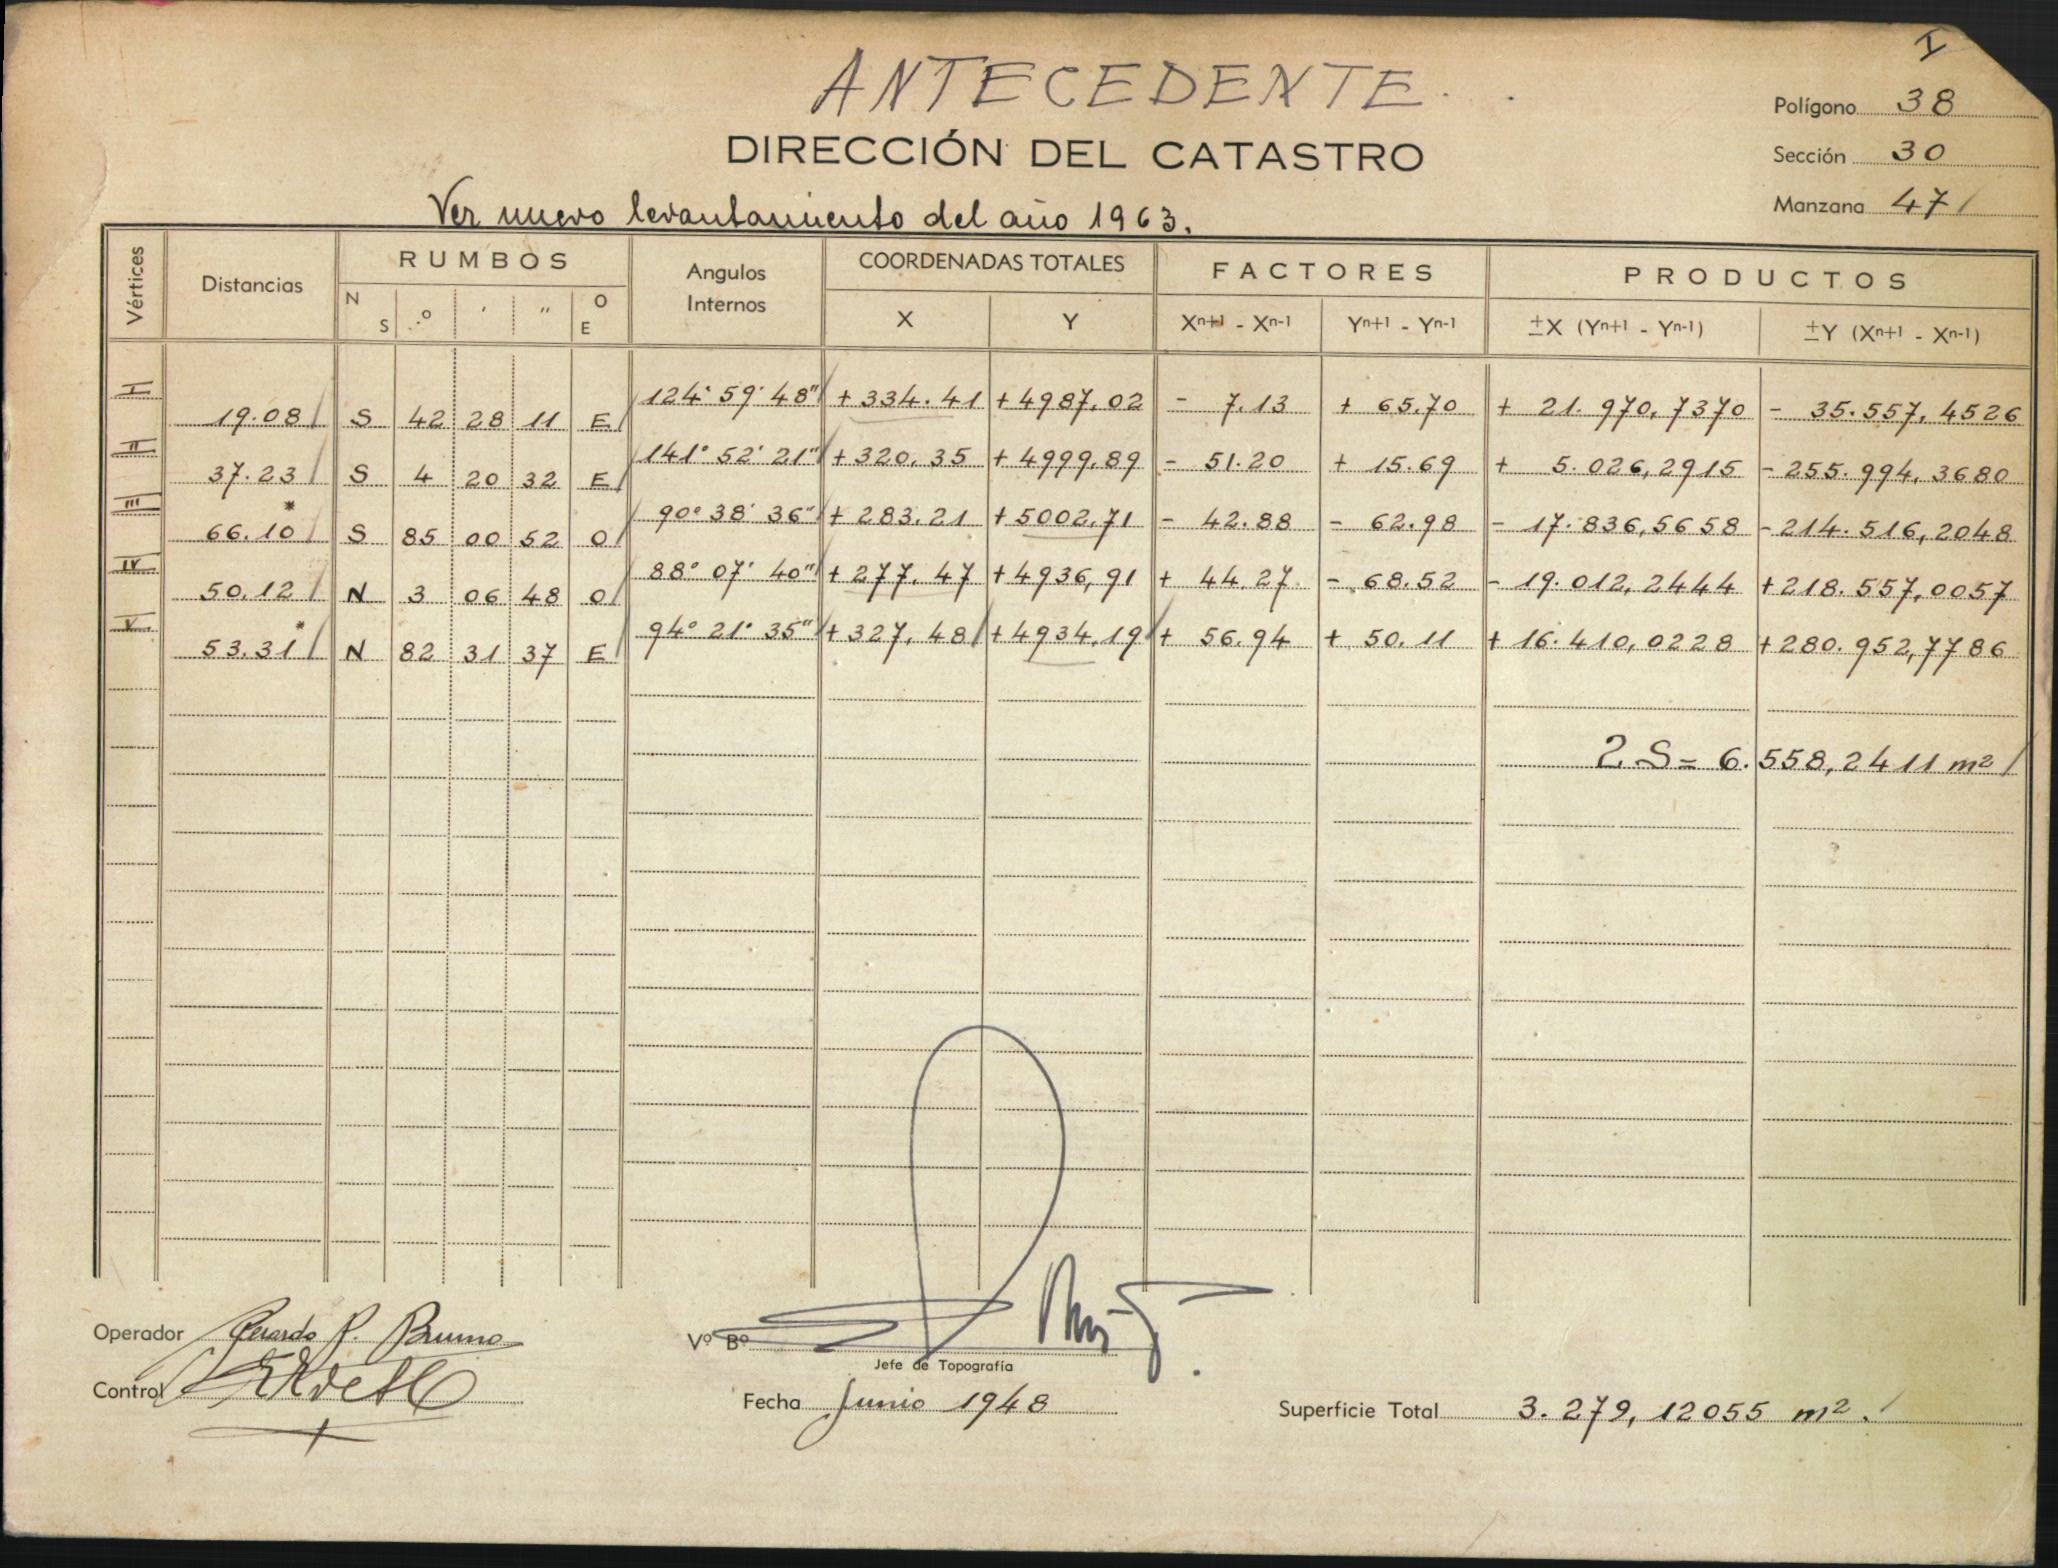 I
ANTECEDENTE.
DIRECCIÓN DEL CATASTRO
Polígono 38
Sección 30
Manzana 47
Ver nuevo levantamiento del año 1963.
Vértices Distancias RUMBOS Angulos Internos COORDENADAS TOTALES FACTORES PRODUCTOS
N S ° ' " O E X Y Xn+1 - Xn-1 Yn+1 - Yn-1 ±X (Yn+1 - Yn-1) ±Y (Xn+1 - Xn-1)
I 19.08 S 42 28 11 E 124° 59' 48" +334.41 +4987,02 - 7.13 + 65.70 + 21.970,7370 - 35.557,4526
II 37.23 S 4 20 32 E 141° 52' 21" +320,35 +4999,89 - 51.20 + 15.69 + 5.026,2915 -255.994,3680
III 66.10* S 85 00 52 O 90° 38' 36" +283.21 +5002,71 - 42.88 - 62.98 - 17.836,5658 -214.516,2048
IV 50.12 N 3 06 48 O 88° 07' 40" +277.47 +4936,91 + 44.27 - 68.52 - 19.012,2444 +218.557,0057
V 53.31* N 82 31 37 E 94° 21' 35" +327,48 +4934,19 + 56.94 + 50.11 + 16.410,0228 +280.952,7786
2 S = 6.558,2411 m²
Operador Gerardo R. Bruno
Control
Vº Bº
Jefe de Topografía
Fecha Junio 1948
Superficie Total 3.279,12055 m².